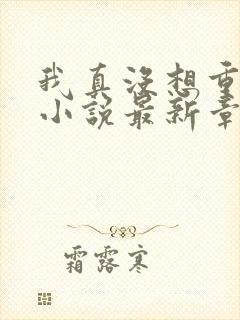 我真没想重
小说最新章
霜露寒